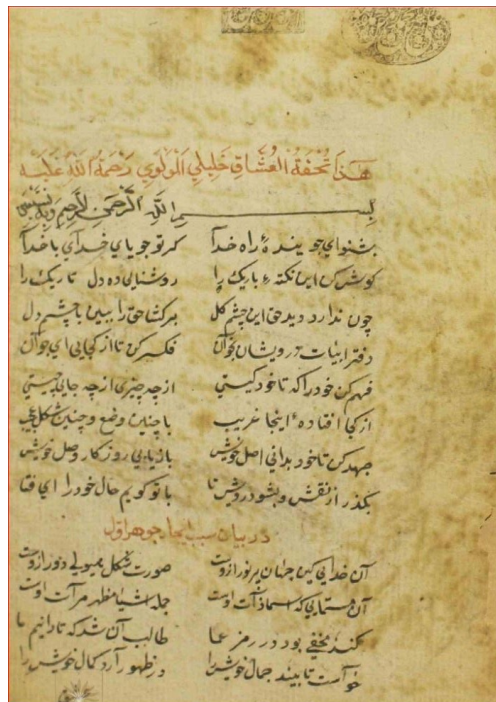 هذا تحفة العشاق خليلي المولوي رحمة الله عليه
بسم الله الرحمن الرحيم وبه نستعين
بشنو ای جوینده راه خدا کر تو جویای خدای با خدا
کوش کن این نکته باریک را روشنایی ده دل تاریک را
چون ندارد دید حق این چشم کل برکشا حق را ببین با چشم دل
دفتر ابیات درویشان بخوان فکر کن تا از کجایی ای جوان
فهم کن خود را که تا خود کیستی از چه چیزی از چه جایی چیستی
از کجا افتاده اینجا غریب با چنین وضع و چنین شکل عجیب
جهد کن تا خود بدانی اصل خویش بازیابی روزکار وصل خویش
بکذر از نقش و بشو درویش تا با تو کویم حال خود را ای فتا
در بیان سبب ایجاد جوهر اول
آن خدایی کین جهان پرنور ازوست صورت شکل هیولی دور ازوست
آن مسمایی که اسما ذات اوست جمله اشیا مظهر مرآت اوست
کنت مخفی بود در رمز عما طالب آن شد که تا دانیم ما
خواست تا بیند جمال خویش را در ظهور آرد کمال خویش را